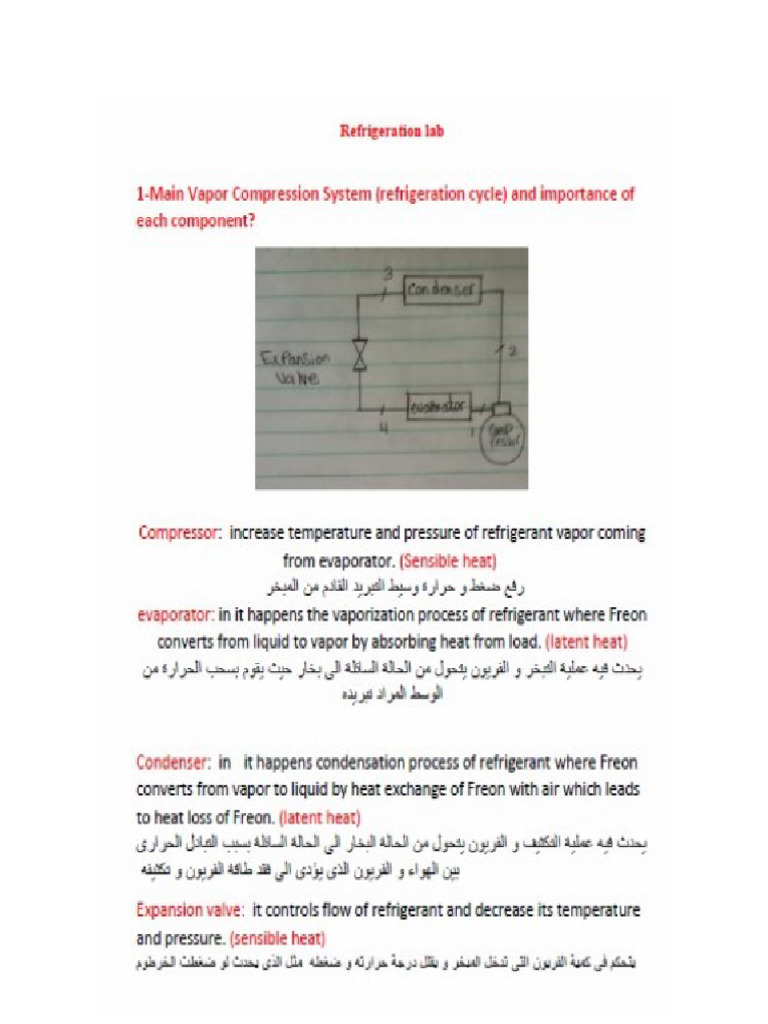 Refrigeration lab
1-Main Vapor Compression System (refrigeration cycle) and importance of
each component?
3
Condenser
2
Expansion
valve
evaporator
4
1
Comp
ressor
Compressor: increase temperature and pressure of refrigerant vapor coming
from evaporator. (Sensible heat)
رفع ضغط و حرارة وسيط التبريد القادم من المبخر
evaporator: in it happens the vaporization process of refrigerant where Freon
converts from liquid to vapor by absorbing heat from load. (latent heat)
يحدث فيه عملية التبخر و الفريون يتحول من الحالة السائلة الى بخار حيث يقوم بسحب الحرارة من
الوسط المراد تبريده
Condenser: in it happens condensation process of refrigerant where Freon
converts from vapor to liquid by heat exchange of Freon with air which leads
to heat loss of Freon. (latent heat)
يحدث فيه عملية التكثيف و الفريون يتحول من الحالة البخار الى الحالة السائلة بسبب التبادل الحرارى
بين الهواء و الفريون الذى يؤدى الى فقد طاقة الفريون و تكثيفه
Expansion valve: it controls flow of refrigerant and decrease its temperature
and pressure. (sensible heat)
يتحكم فى كمية الفريون التى تدخل المبخر و يقلل درجة حرارته و ضغطه مثل الذى يحدث لو ضغطت الخرطوم